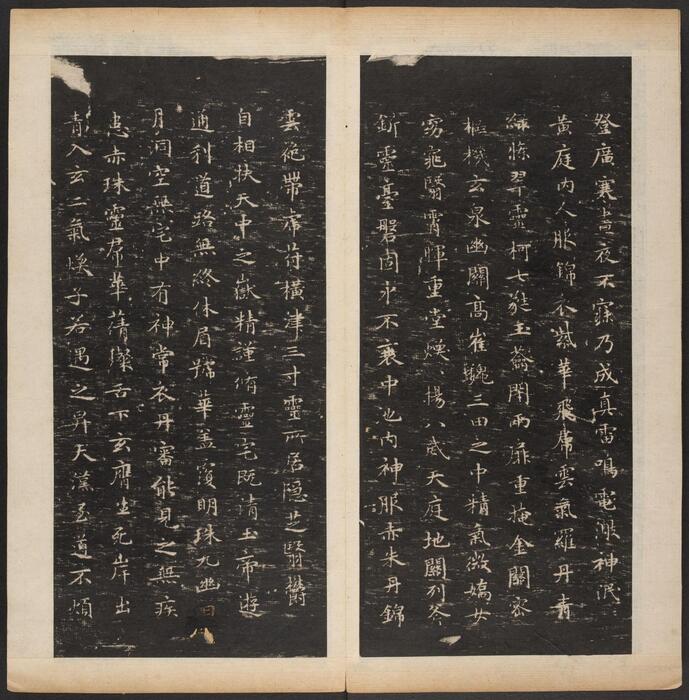 登廣裹晝夜不寐乃成真雷鳴電激神泯〻
黃庭內人服錦衣紫華飛帬雲氣羅丹青
綠條翠靈柯七蕤玉籥閉兩扉重掩金關密
樞機玄泉幽關高崔巍三田之中精氣微嬌女
窈窕翳霄暉重堂煥〻揚八威天庭地關列斧
釿靈臺磐固永不衰中池內神服赤朱丹錦
雲袍帶虎符橫津三寸靈所居隱芝翳鬱
自相扶天中之嶽精謹脩靈宅既清玉帝遊
通利道路無終休眉號華蓋覆明珠九幽日
月洞空無宅中有神常衣丹審能見之無疾
患赤珠靈帬華蒨燦舌下玄膺生死岸出
青入玄二氣煥子若遇之昇天漢至道不煩